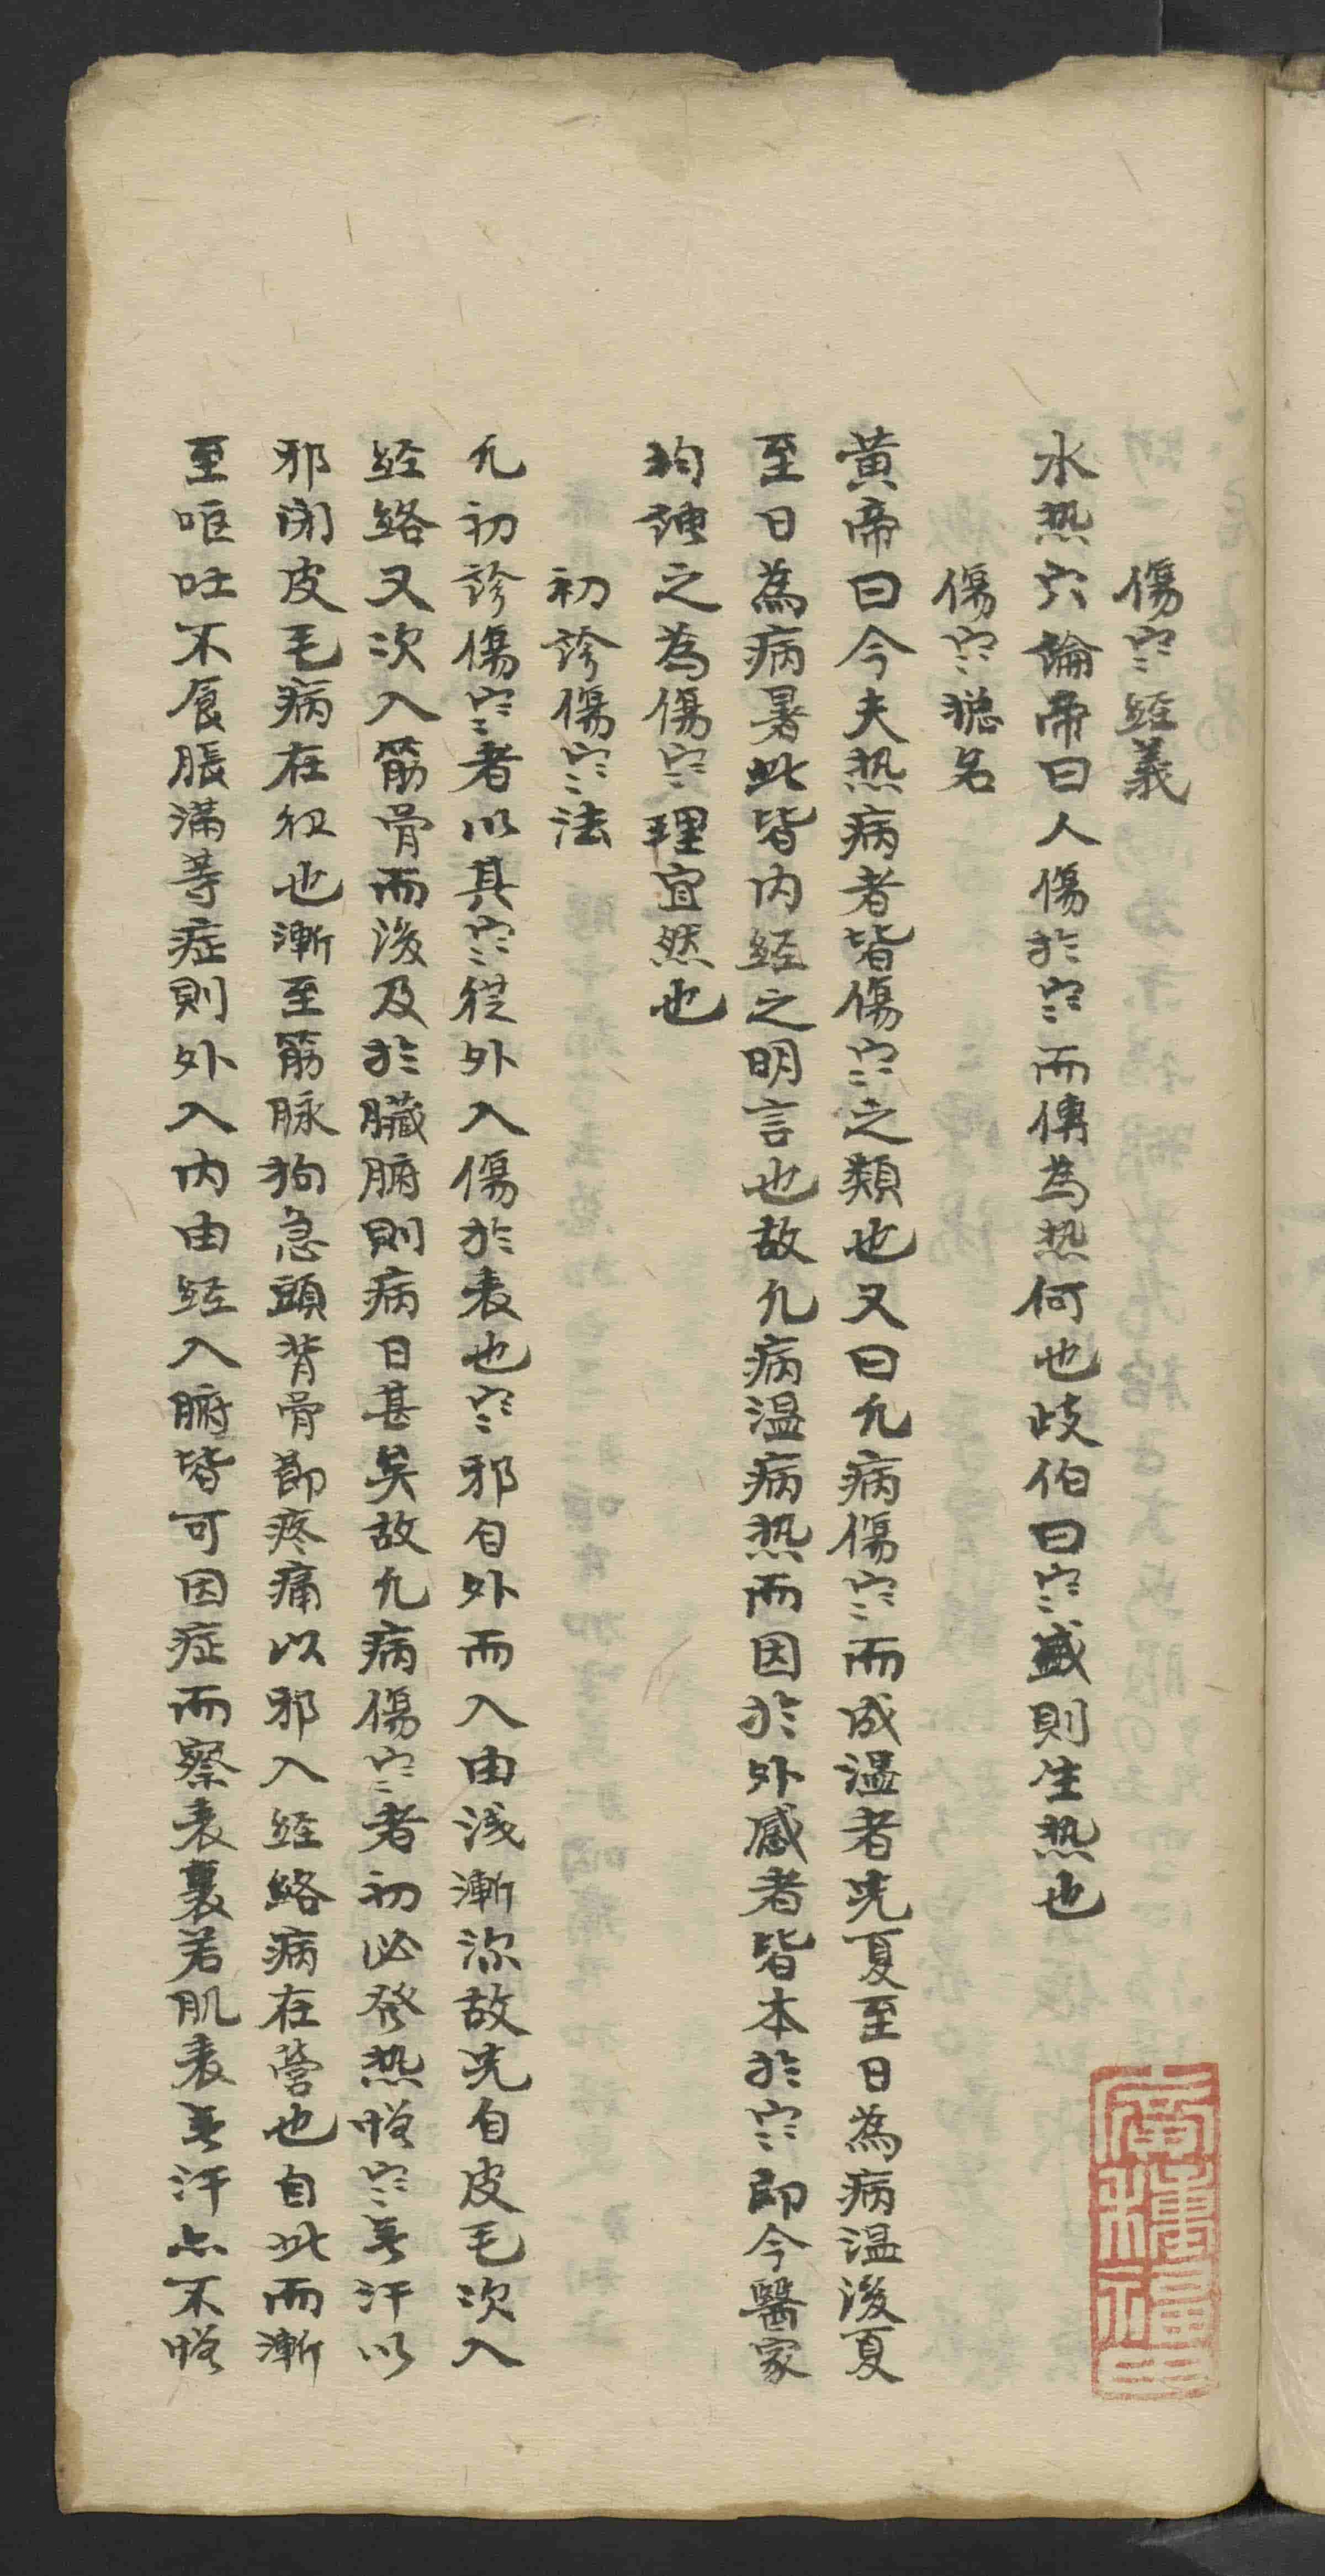 傷寒經義
水热穴論帝曰人傷於寒而傳為热何也歧伯曰寒盛則生热也
傷寒總名
黄帝曰今夫热病者皆傷寒之類也又曰凢病傷寒而成温者先夏至日為病温後夏
至日為病暑此皆内經之明言也故凢病温病热而因於外感者皆本於寒即今醫家
均謂之為傷寒理宜然也
初診傷寒法
凢初診傷寒者以其寒從外入傷於表也寒邪自外而入由浅漸深故先自皮毛次入
經絡又次入筋骨而後及於臟腑則病日甚矣故凢病傷寒者初必發热憎寒無汗以
邪闭皮毛病在衛也漸至筋脉拘急頭背骨節疼痛以邪入經絡病在營也自此而漸
至嘔吐不食脹滿等症則外入内由經入腑皆可因症而察表裏若肌表無汗亦不憎